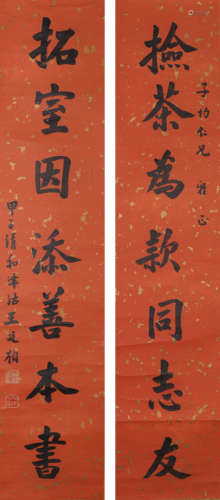 撿茶為款同志友
子約仁兄雅正
拓室因添善本書
甲子清和津沽王廷楨